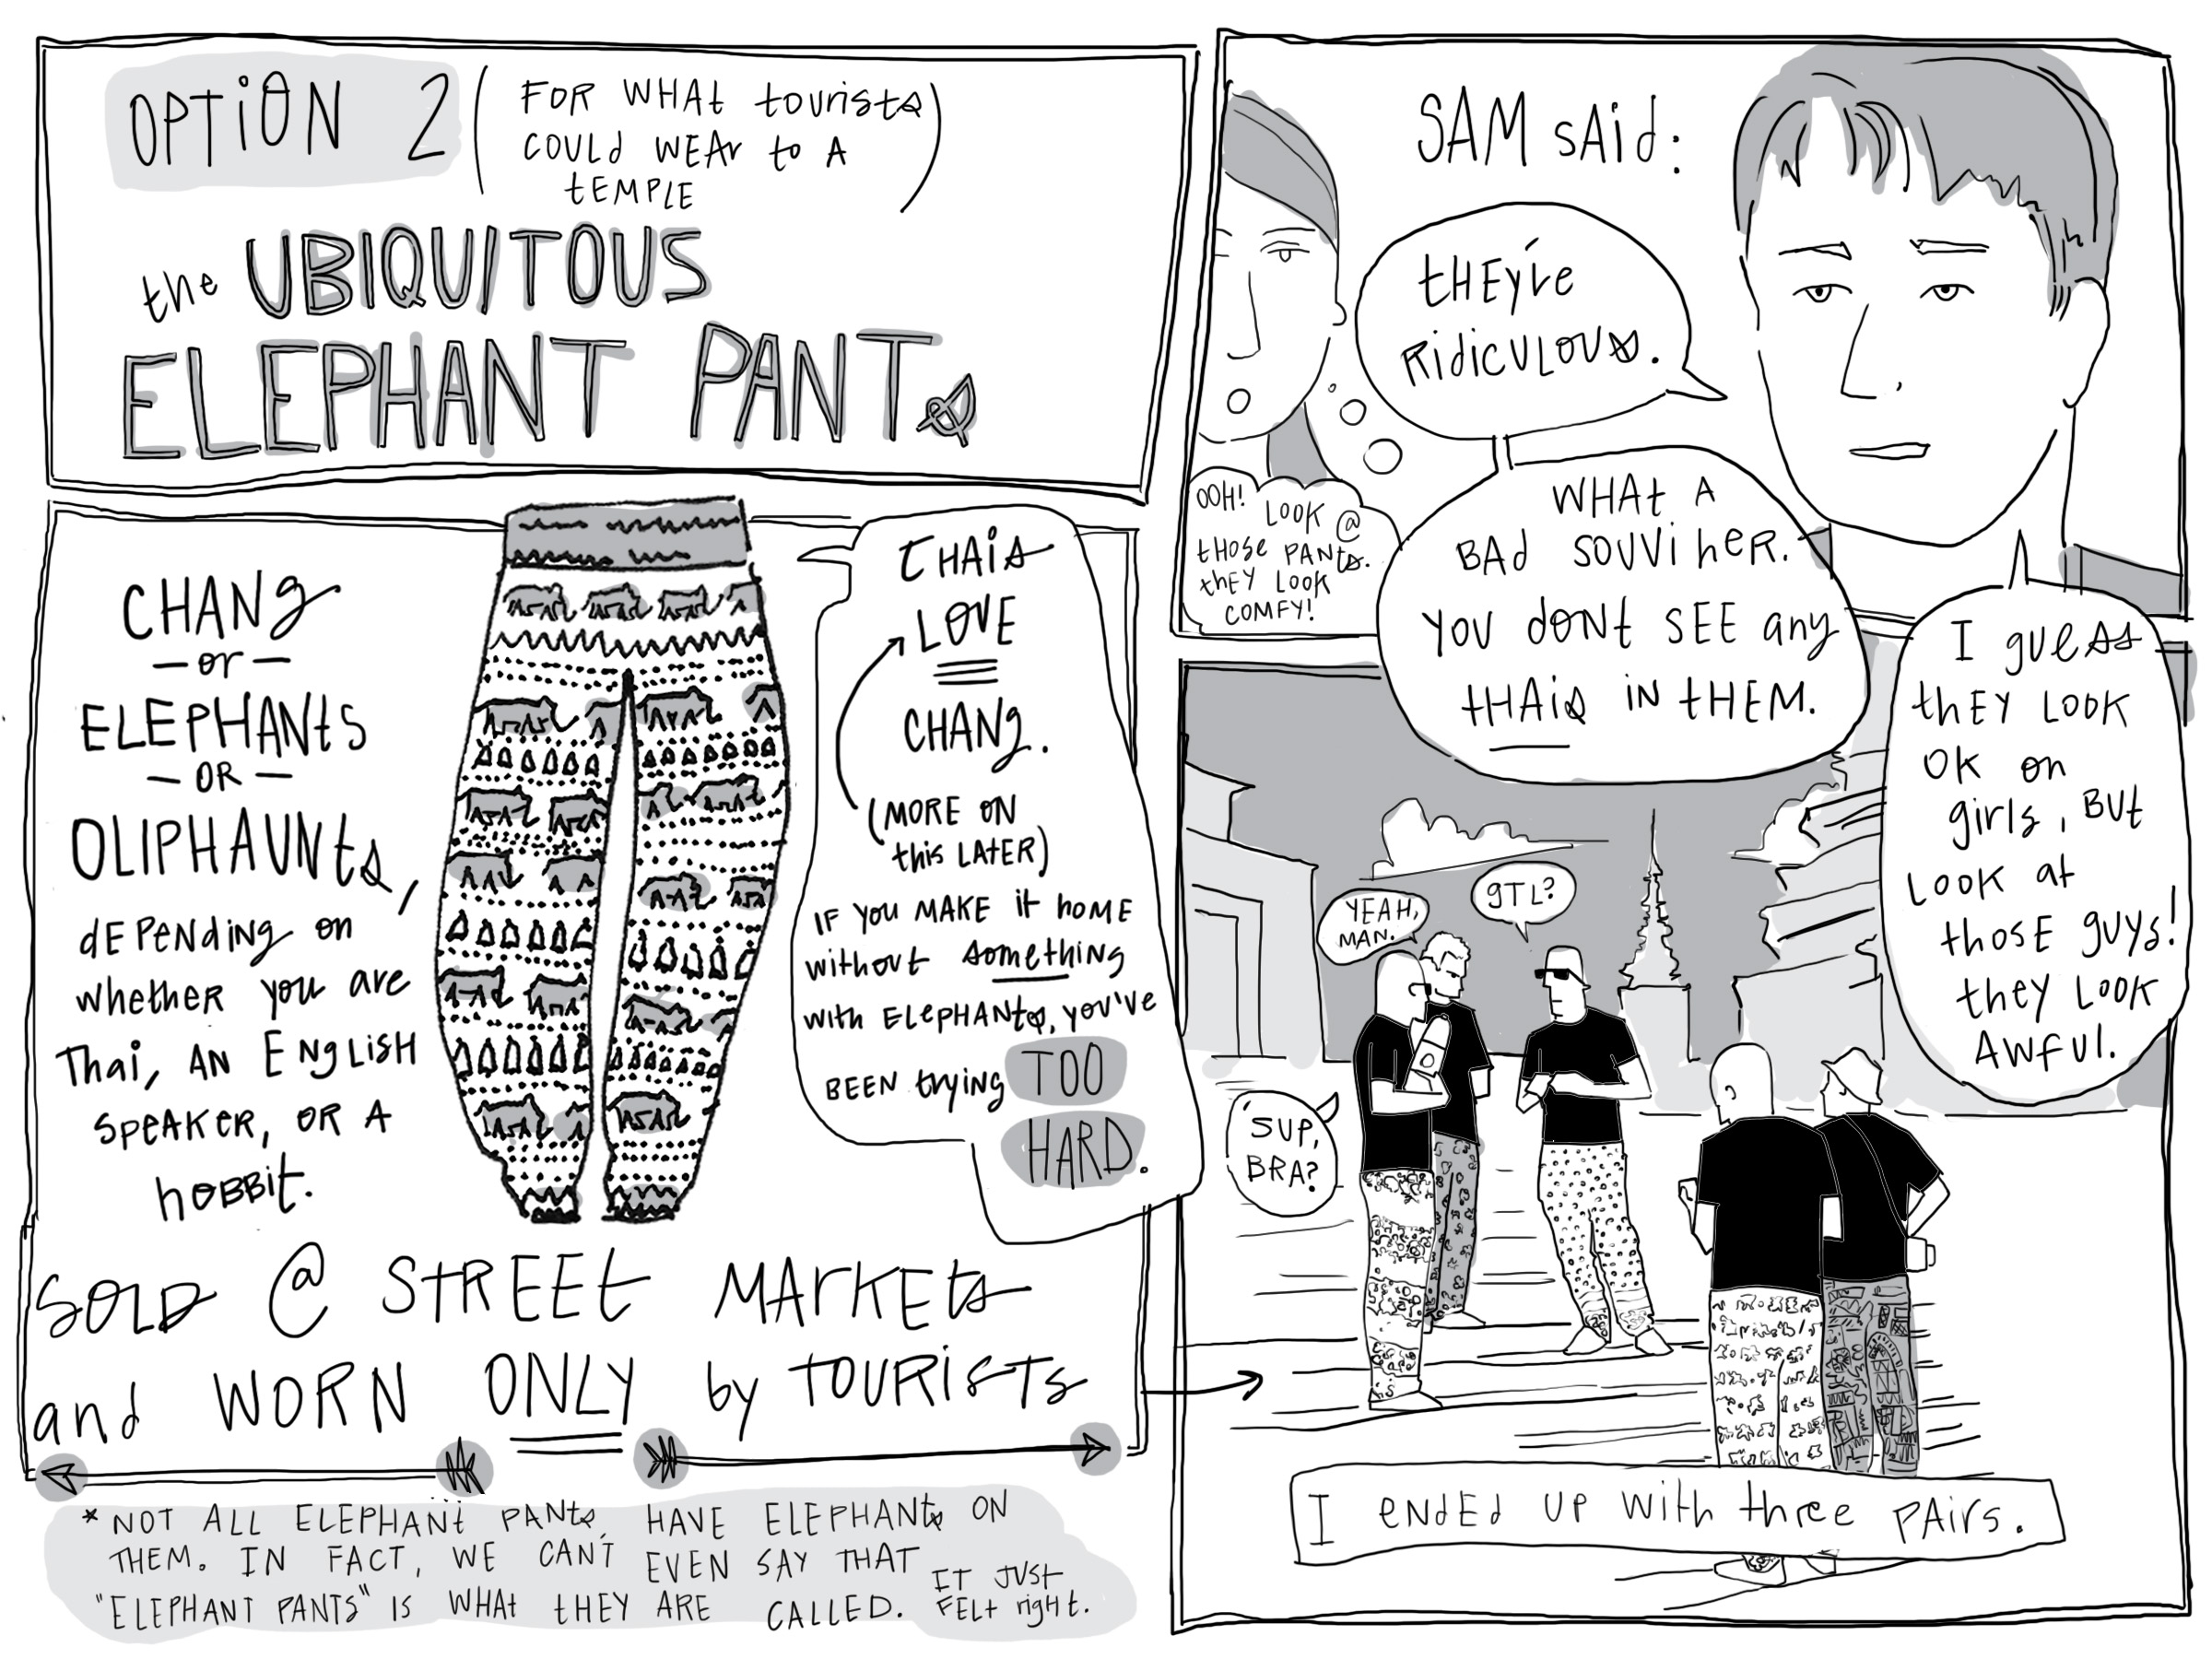 OPTION 2
(FOR WHAT tourists
COULD WEAr to A
tEMPLE)
the UBIQUITOUS
ELEPHANT PANTs
CHANg
- or -
ELEPHANtS
- OR -
OLIPHAUNts,
dEPENding on
whether you are
Thai, AN ENgLiSH
SpEAKer, OR A
hoBBit.
tHAis
LOVE
CHANg.
(MORE ON
this LAtER)
IF YOU MAKE it hOME
without something
with ELEpHANts, you've
BEEN trying TOO
HARD.
SOLD @ StREEt MArKEts
and WORN ONLY by TOURiSTs
* NOT ALL ELEPHANt PANts HAVE ELEPHANts ON
THEM. IN FACT, WE CAN'T EVEN SAY THAT
"ELEPHANT PANTS" IS WHAt tHEY ARE CALLED. IT JUSt
FELt right.
SAM sAid:
tHEy're
RidiCULOUs.
WHAt A
BAd SOUViNER.
YOU dONt SEE any
tHAis IN tHEM.
OOH! LOOK @
tHOSe PANts.
thEY LOOK
COMFY!
I guess
thEY LOOK
OK on
girls, BUt
LOOK at
thosE guys!
they LOOK
AWFUL.
YEAH,
MAN.
gTL?
SUP,
BRA?
I ENdEd UP with three PAirs.